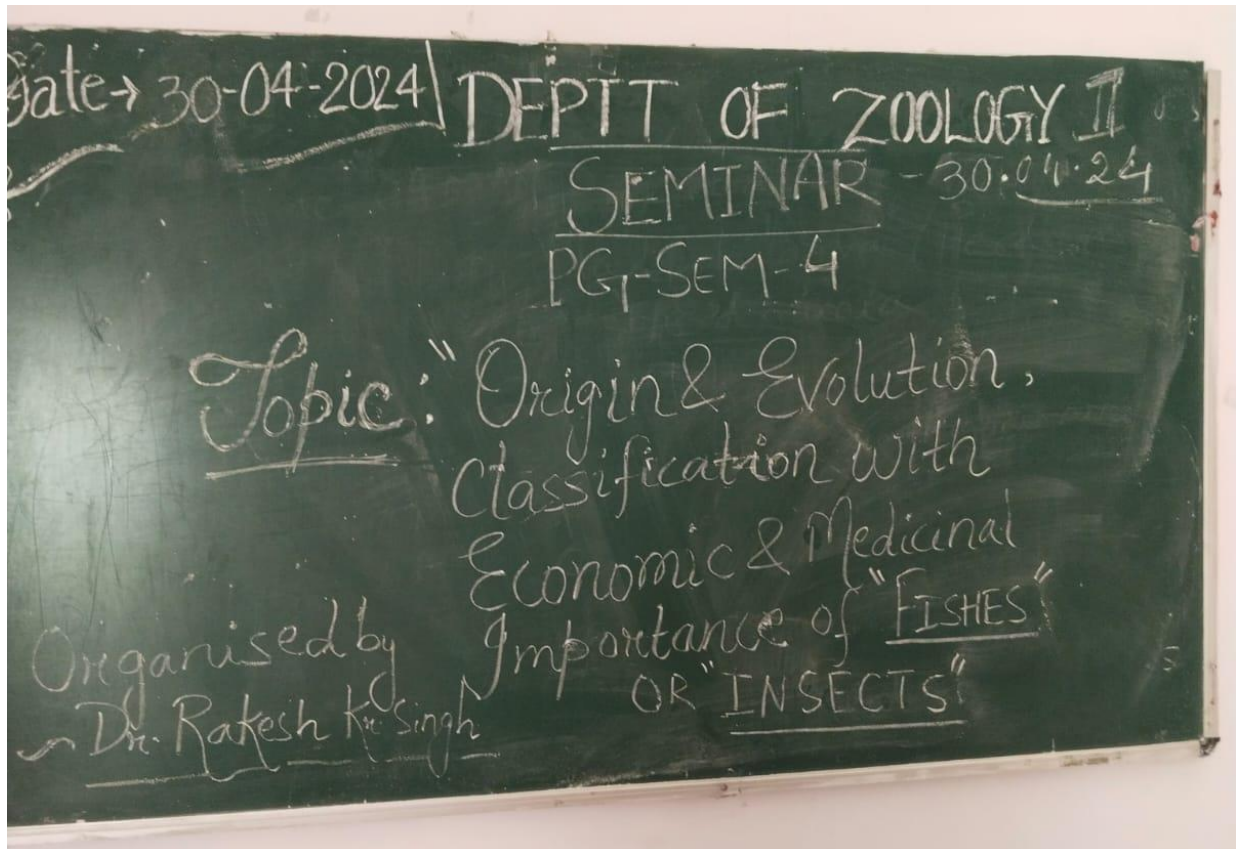 Date→ 30-04-2024
DEPTT OF ZOOLOGY II
SEMINAR - 30.04.24
PG-SEM-4
Topic: "Origin & Evolution,
Classification with
Economic & Medicinal
Importance of "FISHES"
OR "INSECTS"
Organised by
~ Dr. Rakesh Kr. Singh